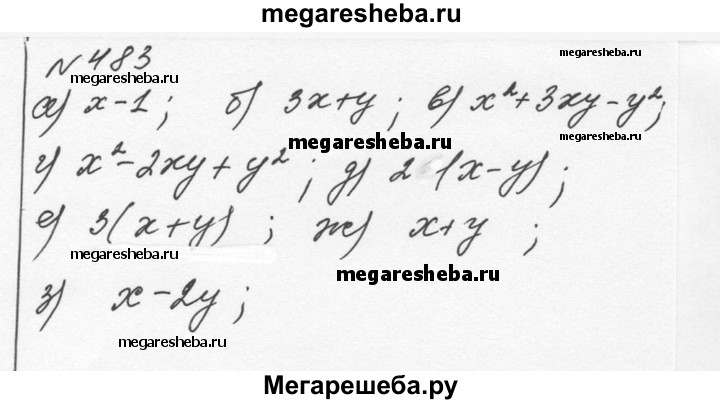 megaresheba.ru
№ 483
megaresheba.ru
megaresheba.ru
а) x-1; б) 3x+y; в) x²+3xy-y²;
megaresheba.ru
г) x²-2xy+y²; д) 2 (x-y);
е) 3(x+y); ж) x+y;
megaresheba.ru
з) x-2y;
megaresheba.ru
Мегарешеба.ру